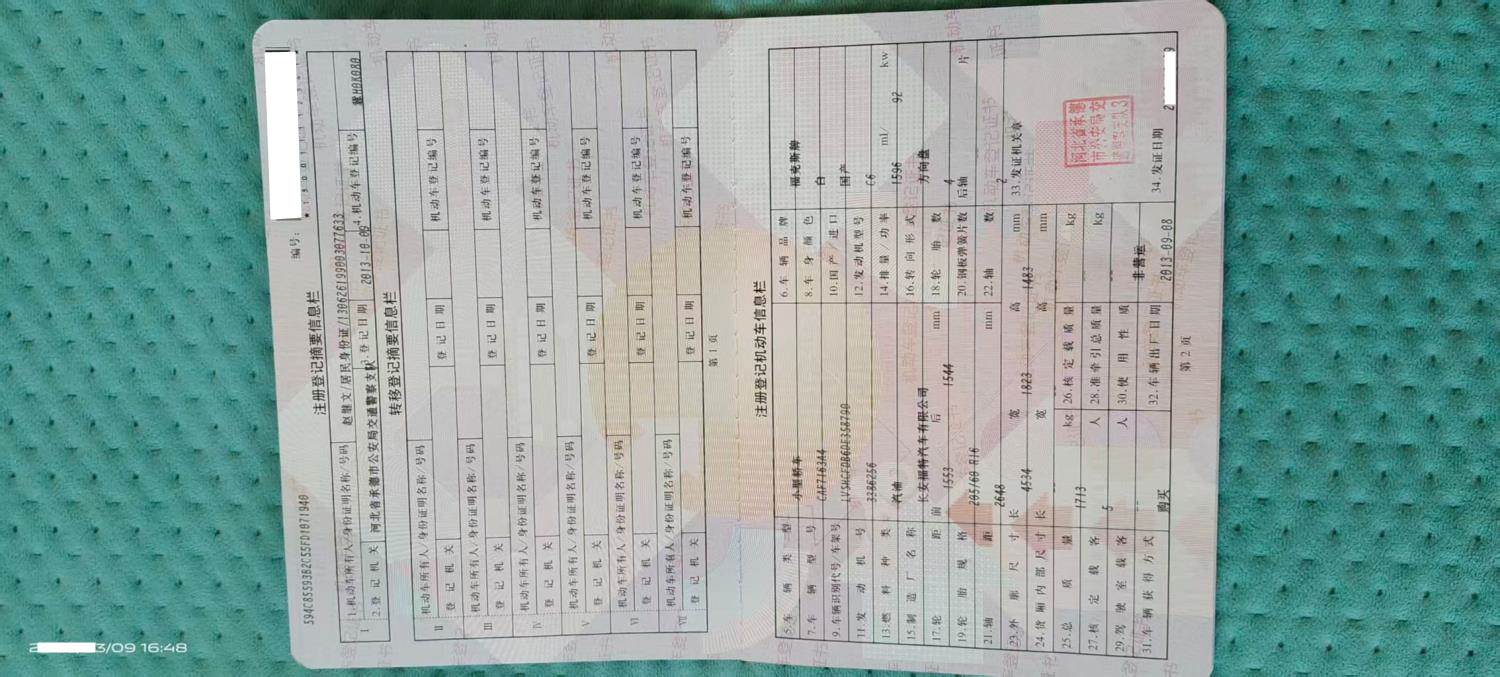 编号:
594C85593B2C55FD1071940
注册登记摘要信息栏
I 1.机动车所有人/身份证明名称/号码 赵继文/居民身份证/130626199003077633
2.登记机关 河北省承德市公安局交通警察支队 3.登记日期 2013-10-09 4.机动车登记编号
转移登记摘要信息栏
II 机动车所有人/身份证明名称/号码
登记机关 登记日期 机动车登记编号
III 机动车所有人/身份证明名称/号码
登记机关 登记日期 机动车登记编号
IV 机动车所有人/身份证明名称/号码
登记机关 登记日期 机动车登记编号
V 机动车所有人/身份证明名称/号码
登记机关 登记日期 机动车登记编号
VI 机动车所有人/身份证明名称/号码
登记机关 登记日期 机动车登记编号
VII 机动车所有人/身份证明名称/号码
登记机关 登记日期 机动车登记编号
第1页
注册登记机动车信息栏
5.车辆类型 小型轿车 6.车辆品牌 福克斯牌
7.车辆型号 CAF7163A4 8.车身颜色 白
9.车辆识别代号/车架号 LVSHCFDB6DF358790 10.国产/进口 国产
11.发动机号 3286256 12.发动机型号 C6
13.燃料种类 汽油 14.排量/功率 1596 ml/ 92 kw
15.制造厂名称 长安福特汽车有限公司 16.转向形式 方向盘
17.轮距 前 1553 后 1544 mm 18.轮胎数 4
19.轮胎规格 205/60 R16 20.钢板弹簧片数 后轴 片
21.轴距 2648 mm 22.轴数 2
23.外廓尺寸 长 4534 宽 1823 高 1483 mm 33.发证机关章
24.货厢内部尺寸 长 宽 高 mm
25.总质量 1713 kg 26.核定载质量 kg
27.核定载客 5 人 28.准牵引总质量 kg
29.驾驶室载客 人 30.使用性质 非营运
31.车辆获得方式 购买 32.车辆出厂日期 2013-09-08 34.发证日期
第2页
河北省承德
市公安局交
3/09 16:48